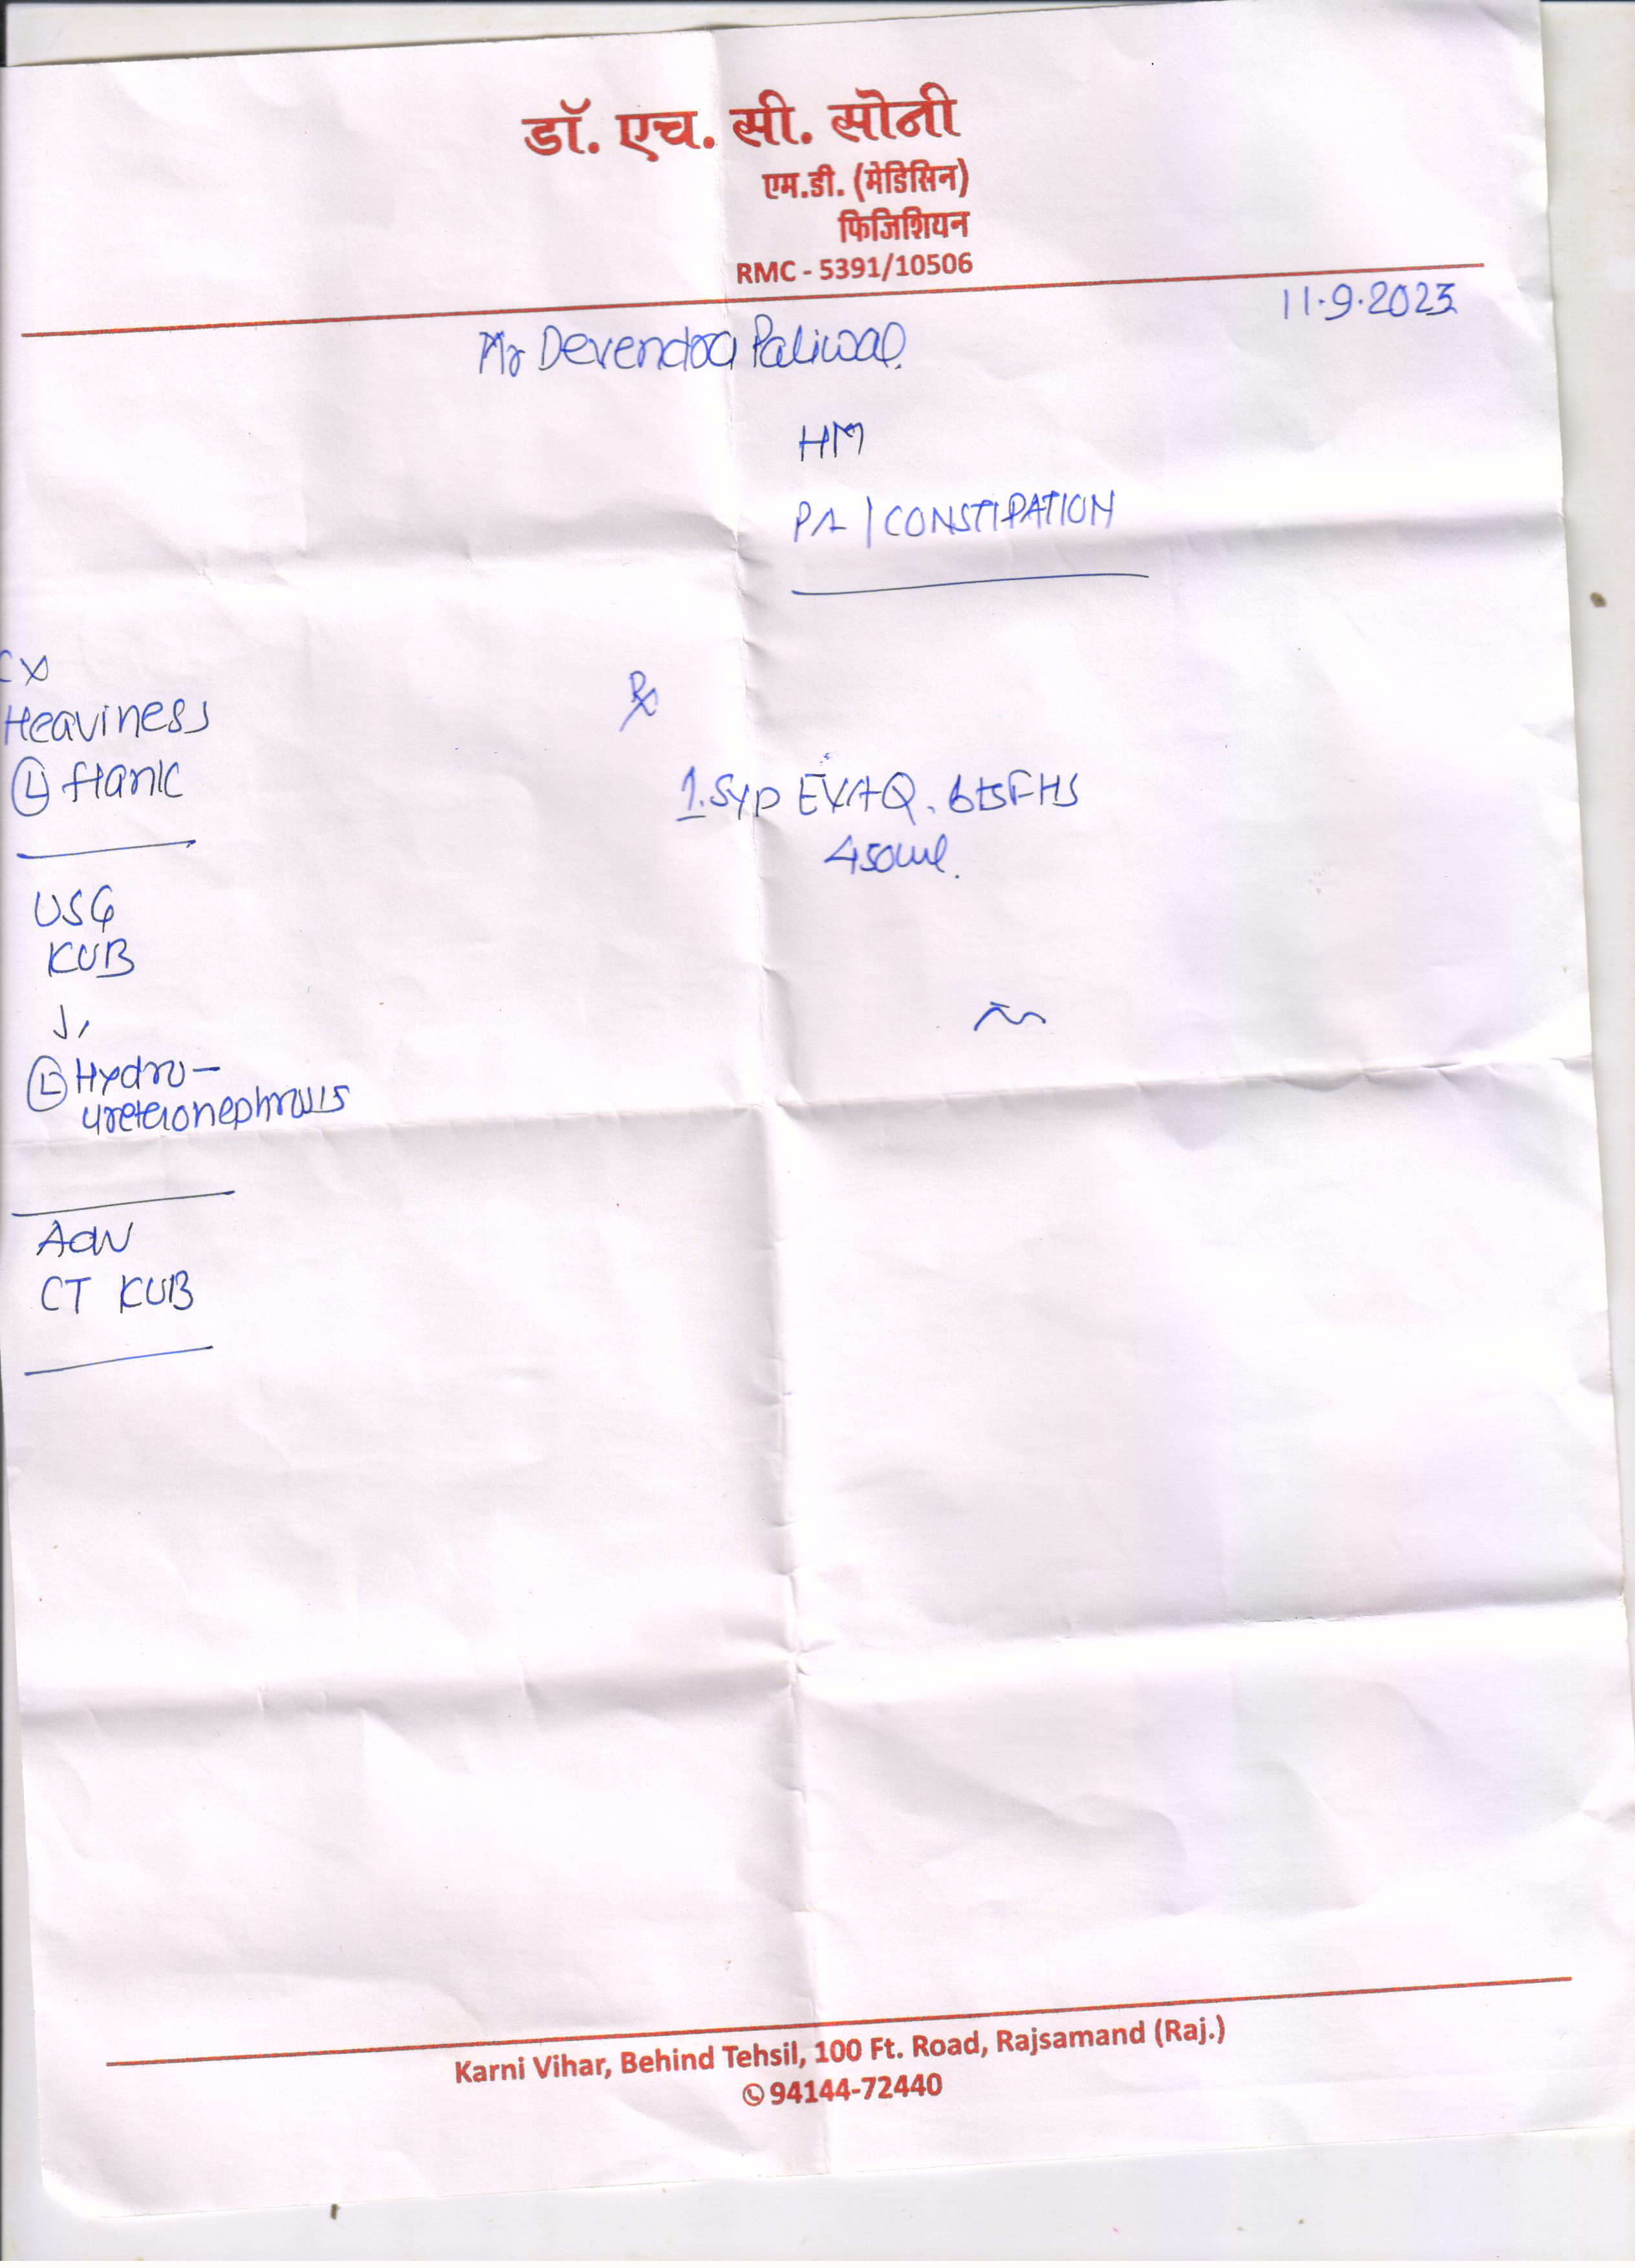 डॉ. एच. सी. सोनी
एम.डी. (मेडिसिन)
फिजिशियन
RMC - 5391/10506
11.9.2023
Mr Devendra Paliwal.
HM
PA | CONSTIPATION
Cx
Heaviness
Ⓛ flank
USG
KUB
↓
Ⓛ Hydro-
ureteronephrosis
Adv
CT KUB
℞
1. Syp EVAQ. 6tsFHS
450ml.
Karni Vihar, Behind Tehsil, 100 Ft. Road, Rajsamand (Raj.)
94144-72440